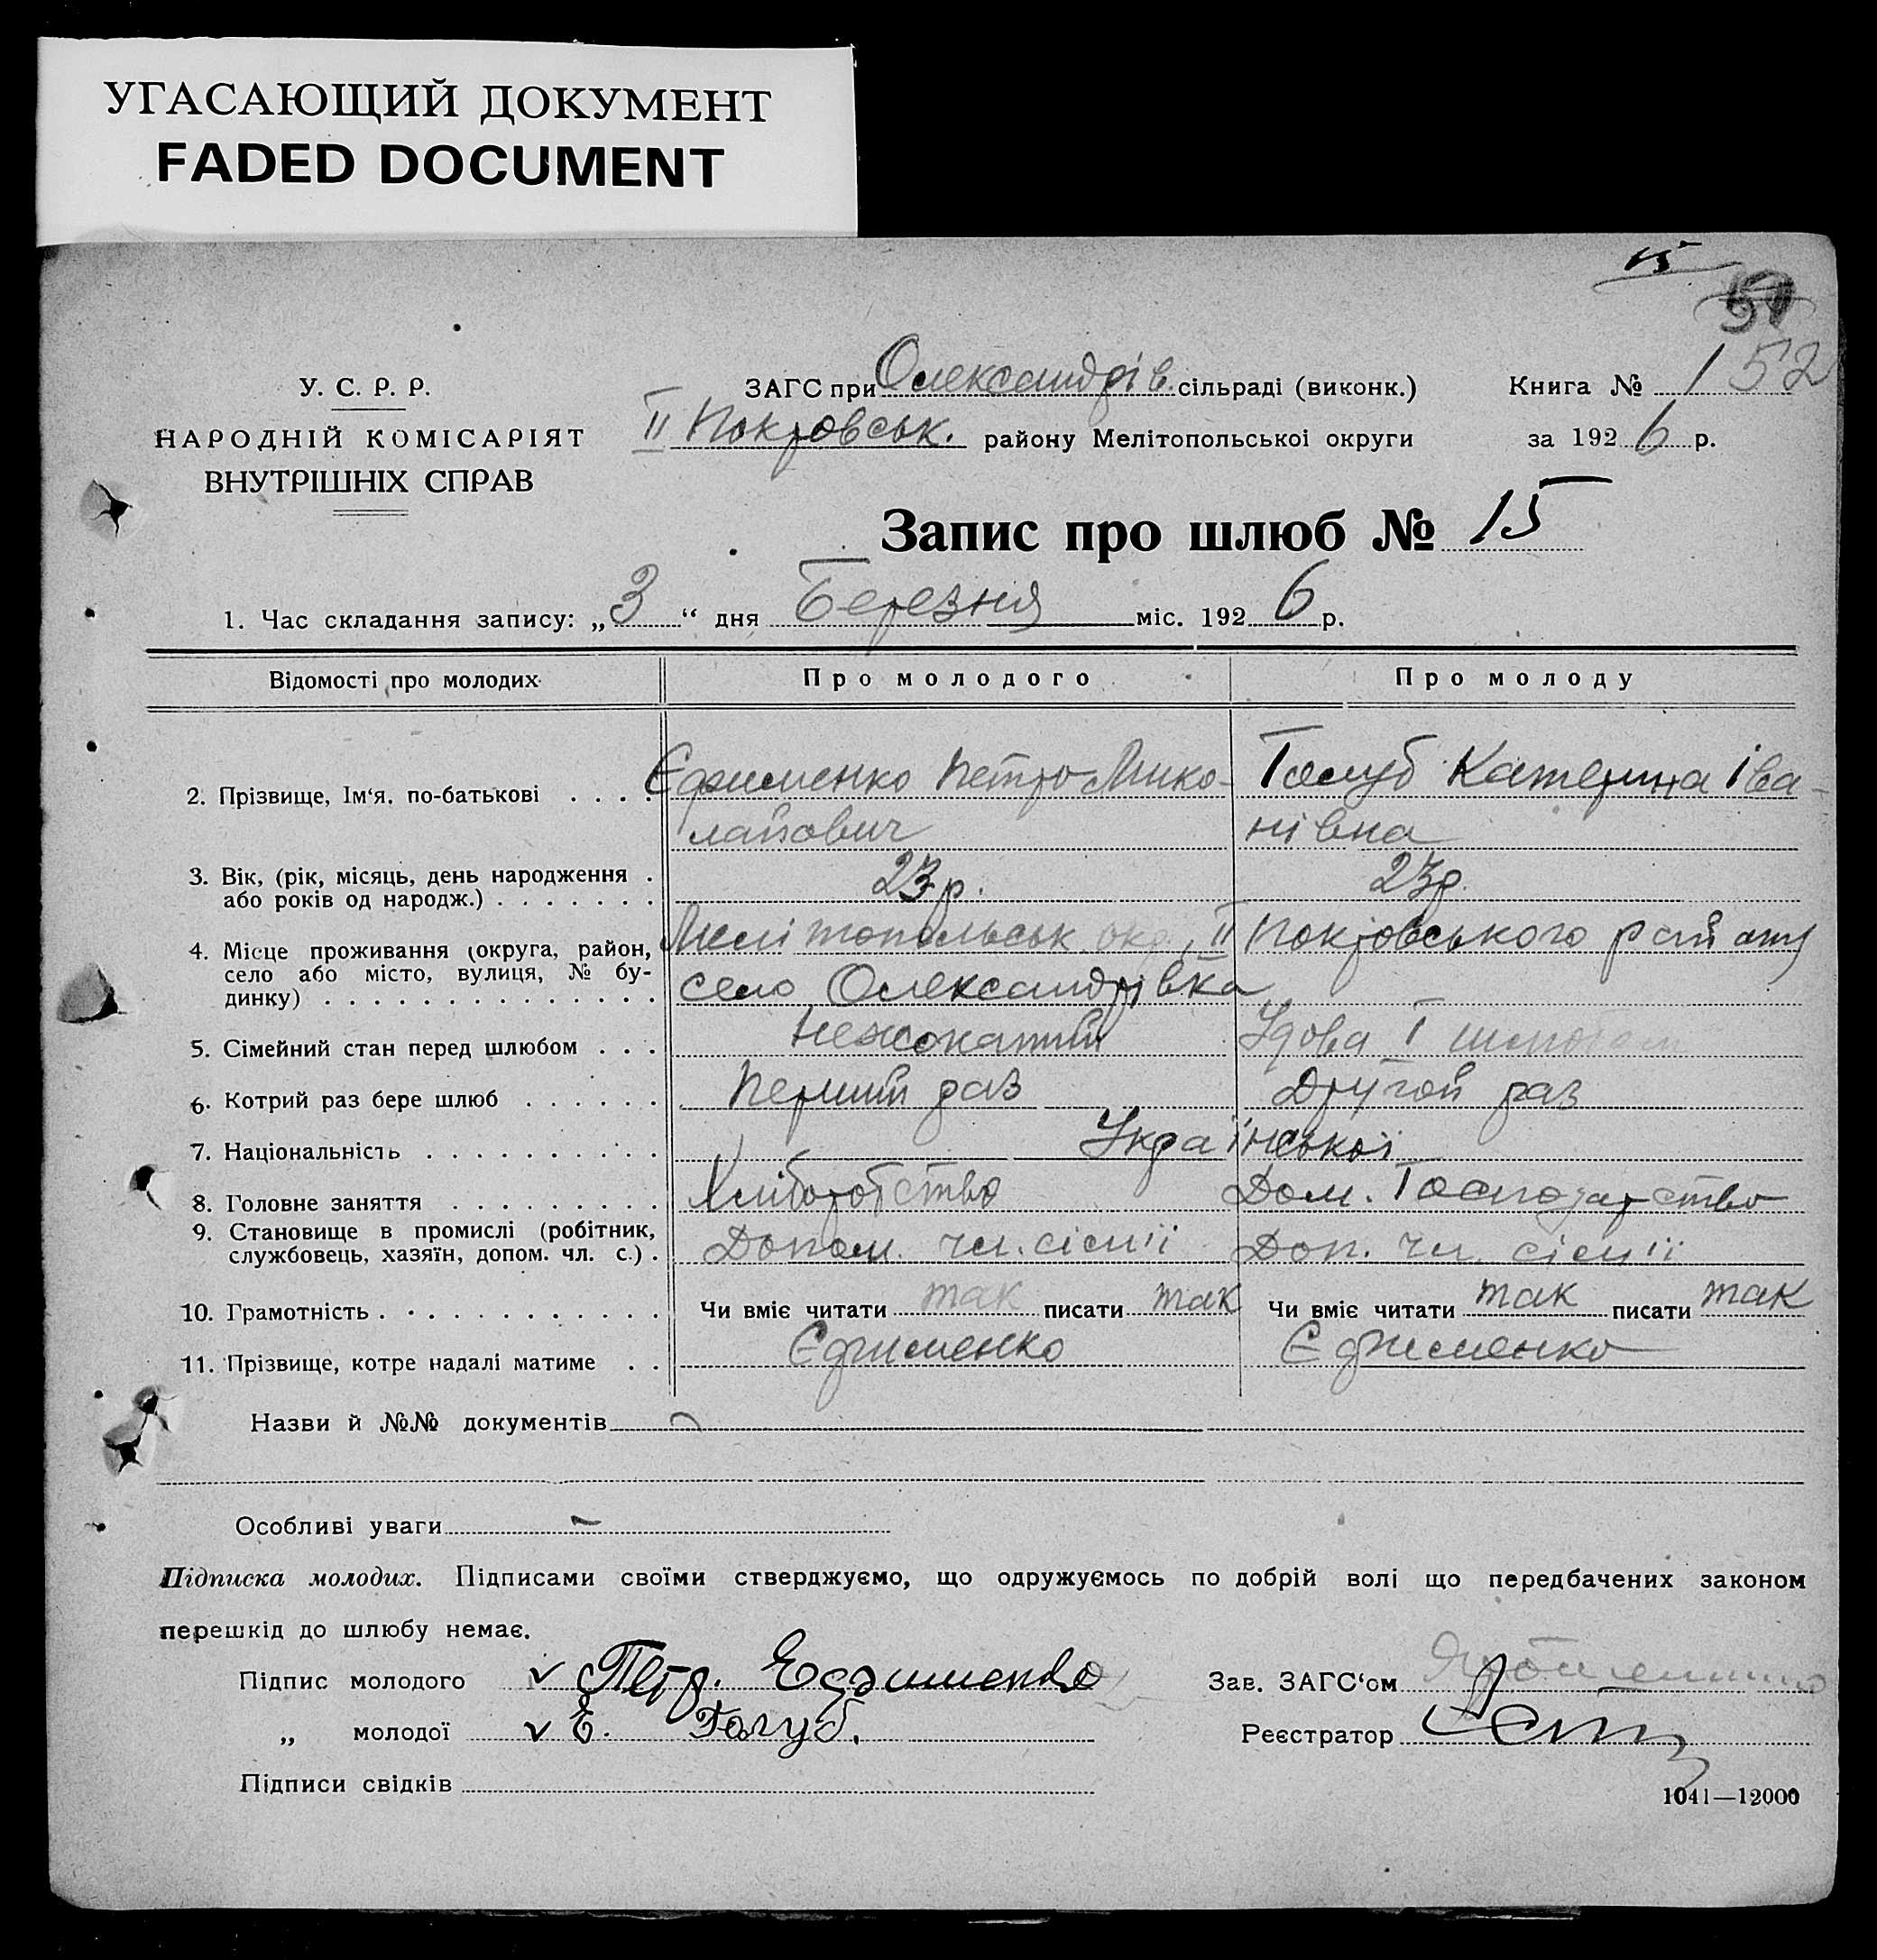 УГАСАЮЩИЙ ДОКУМЕНТ
FADED DOCUMENT
15
У. С. Р. Р.
ЗАГС при Олександрів. сільраді (виконк.)
Книга № 1 52
НАРОДНІЙ КОМІСАРІЯТ
II Покровськ. району Мелітопольської округи
за 1926 р.
ВНУТРІШНІХ СПРАВ
Запис про шлюб № 15
1. Час складання запису: „3“ дня Березня міс. 1926 р.
Відомості про молодих
Про молодого
Про молоду
2. Прізвище, Ім‘я, по-батькові . . . .
Єфименко Петро Мико-
лайович
Голуб Катерина Іва-
нівна
3. Вік, (рік, місяць, день народження .
або років од народж.) . . . . . . .
23 р.
23 р.
4. Місце проживання (округа, район,
село або місто, вулиця, № бу-
динку) . . . . . . . . . . . . . .
Мелітопольськ. окр., II Покровського району
село Олександрівка
5. Сімейний стан перед шлюбом . . .
Нежонатий
Удова I
6. Котрий раз бере шлюб . . . . . .
Перший раз
Другой раз
7. Національність . . . . . . . . . .
Української
8. Головне заняття . . . . . . . . .
Хліборобство
Дом. Господарство
9. Становище в промислі (робітник,
службовець, хазяїн, допом. чл. с.) .
Допом. чл. сім'ії
Доп. чл. сім'ії
10. Грамотність . . . . . . . . . . . .
Чи вміє читати так писати так
Чи вміє читати так писати так
11. Прізвище, котре надалі матиме . .
Єфименко
Єфименко
Назви й №№ документів
Особливі уваги –
Підписка молодих. Підписами своїми стверджуємо, що одружуємось по добрій волі що передбачених законом
перешкід до шлюбу немає.
Підпис молодого ✓ Петр. Ефименко
Зав. ЗАГС‘ом
„ молодої ✓ Е. Голуб.
Реєстратор
Підписи свідків
1041—12000